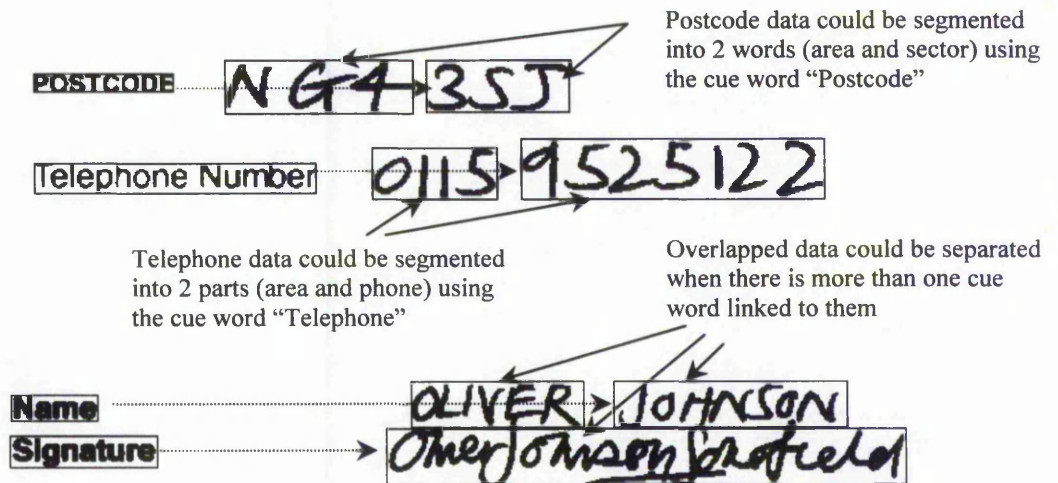 Postcode data could be segmented
into 2 words (area and sector) using
the cue word “Postcode”
POSTCODE NG4 3SJ
Telephone Number 0115 9525122
Telephone data could be segmented
into 2 parts (area and phone) using
the cue word “Telephone”
Overlapped data could be separated
when there is more than one cue
word linked to them
Name OLIVER JOHNSON
Signature Johnson